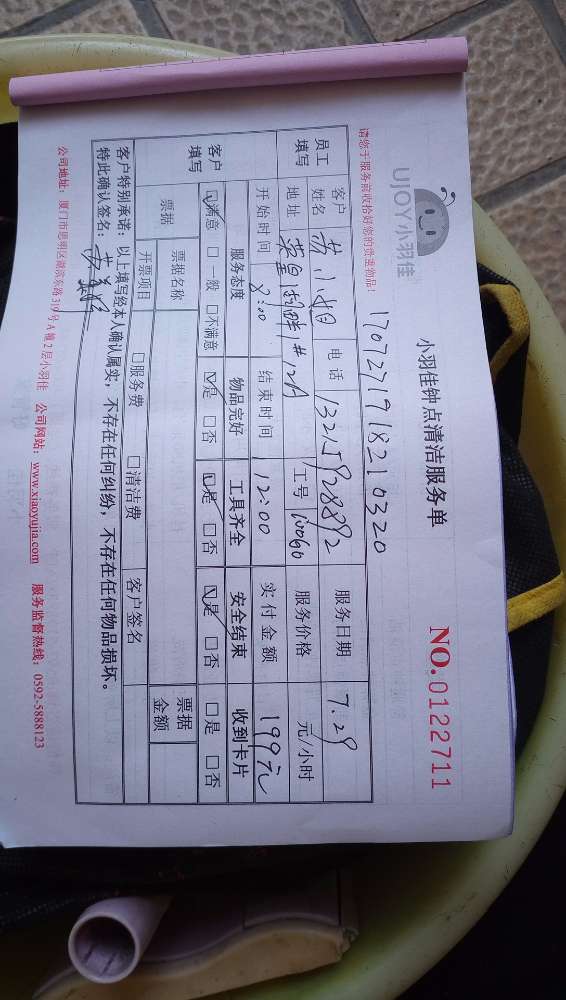 UJOY小羽佳
小羽佳钟点清洁服务单
NO.0122711
请您于服务前收拾好您的贵重物品!
1707271918210320
员工填写
客户姓名 黄小姐 电话 13215928892 服务日期 7.29
地址 1#12A 工号 10060 服务价格 元/小时
开始时间 8:00 结束时间 12:00 实付金额 199元
客户填写
服务态度 物品完好 工具齐全 安全结束 收到卡片
☑满意 □一般 □不满意 ☑是 □否 ☑是 □否 ☑是 □否 □是 □否
票据 票据名称 票据金额
开票项目 □服务费 □清洁费 客户签名
客户特别承诺:以上填写经本人确认属实,不存在任何纠纷,不存在任何物品损坏。
特此确认签名:
公司地址:厦门市思明区湖滨东路319号A幢2层小羽佳 公司网站:www.xiaoyujia.com 服务监督热线:0592-5888123